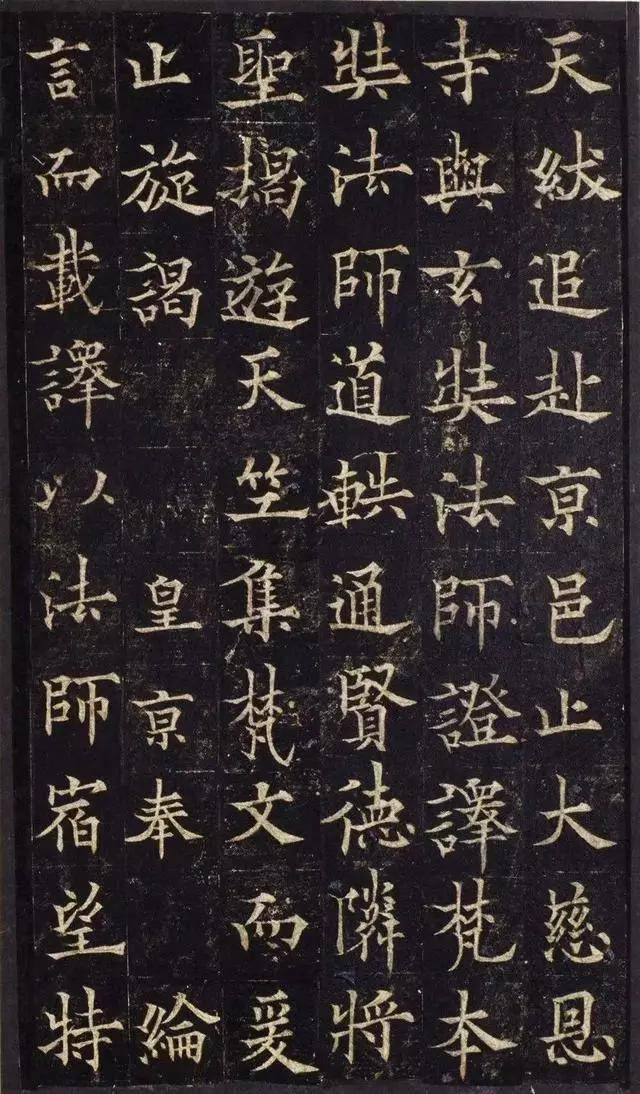 天紱追赴亰邑止大慈恩
寺與玄奘法師證譯梵本
奘法師道軼通賢德隣將
聖揭遊天竺集梵文而爰
止旋謁　皇亰奉　綸
言而載譯以法師宿望特